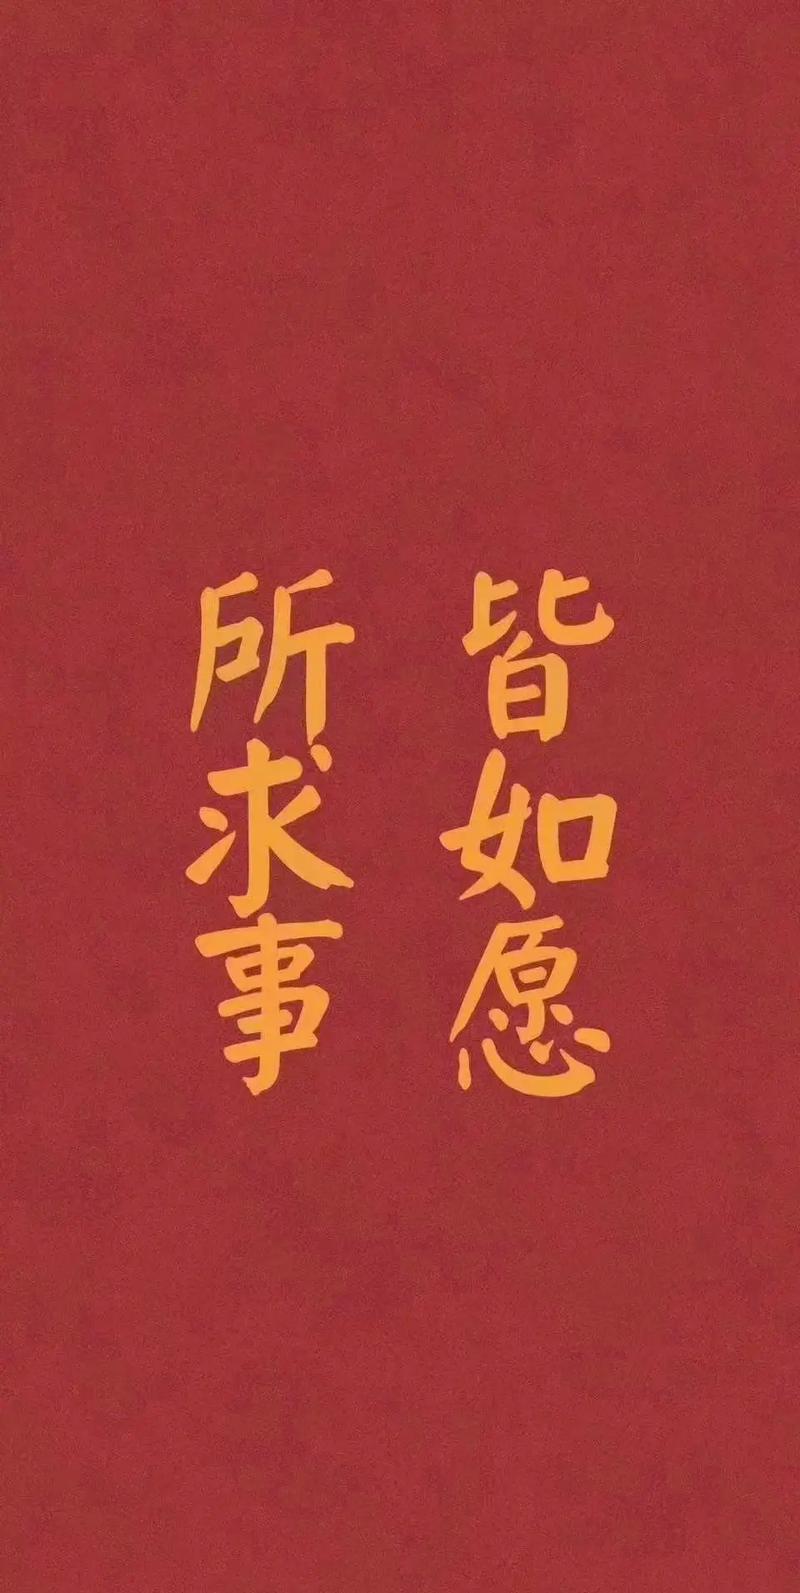 所求事
皆如愿